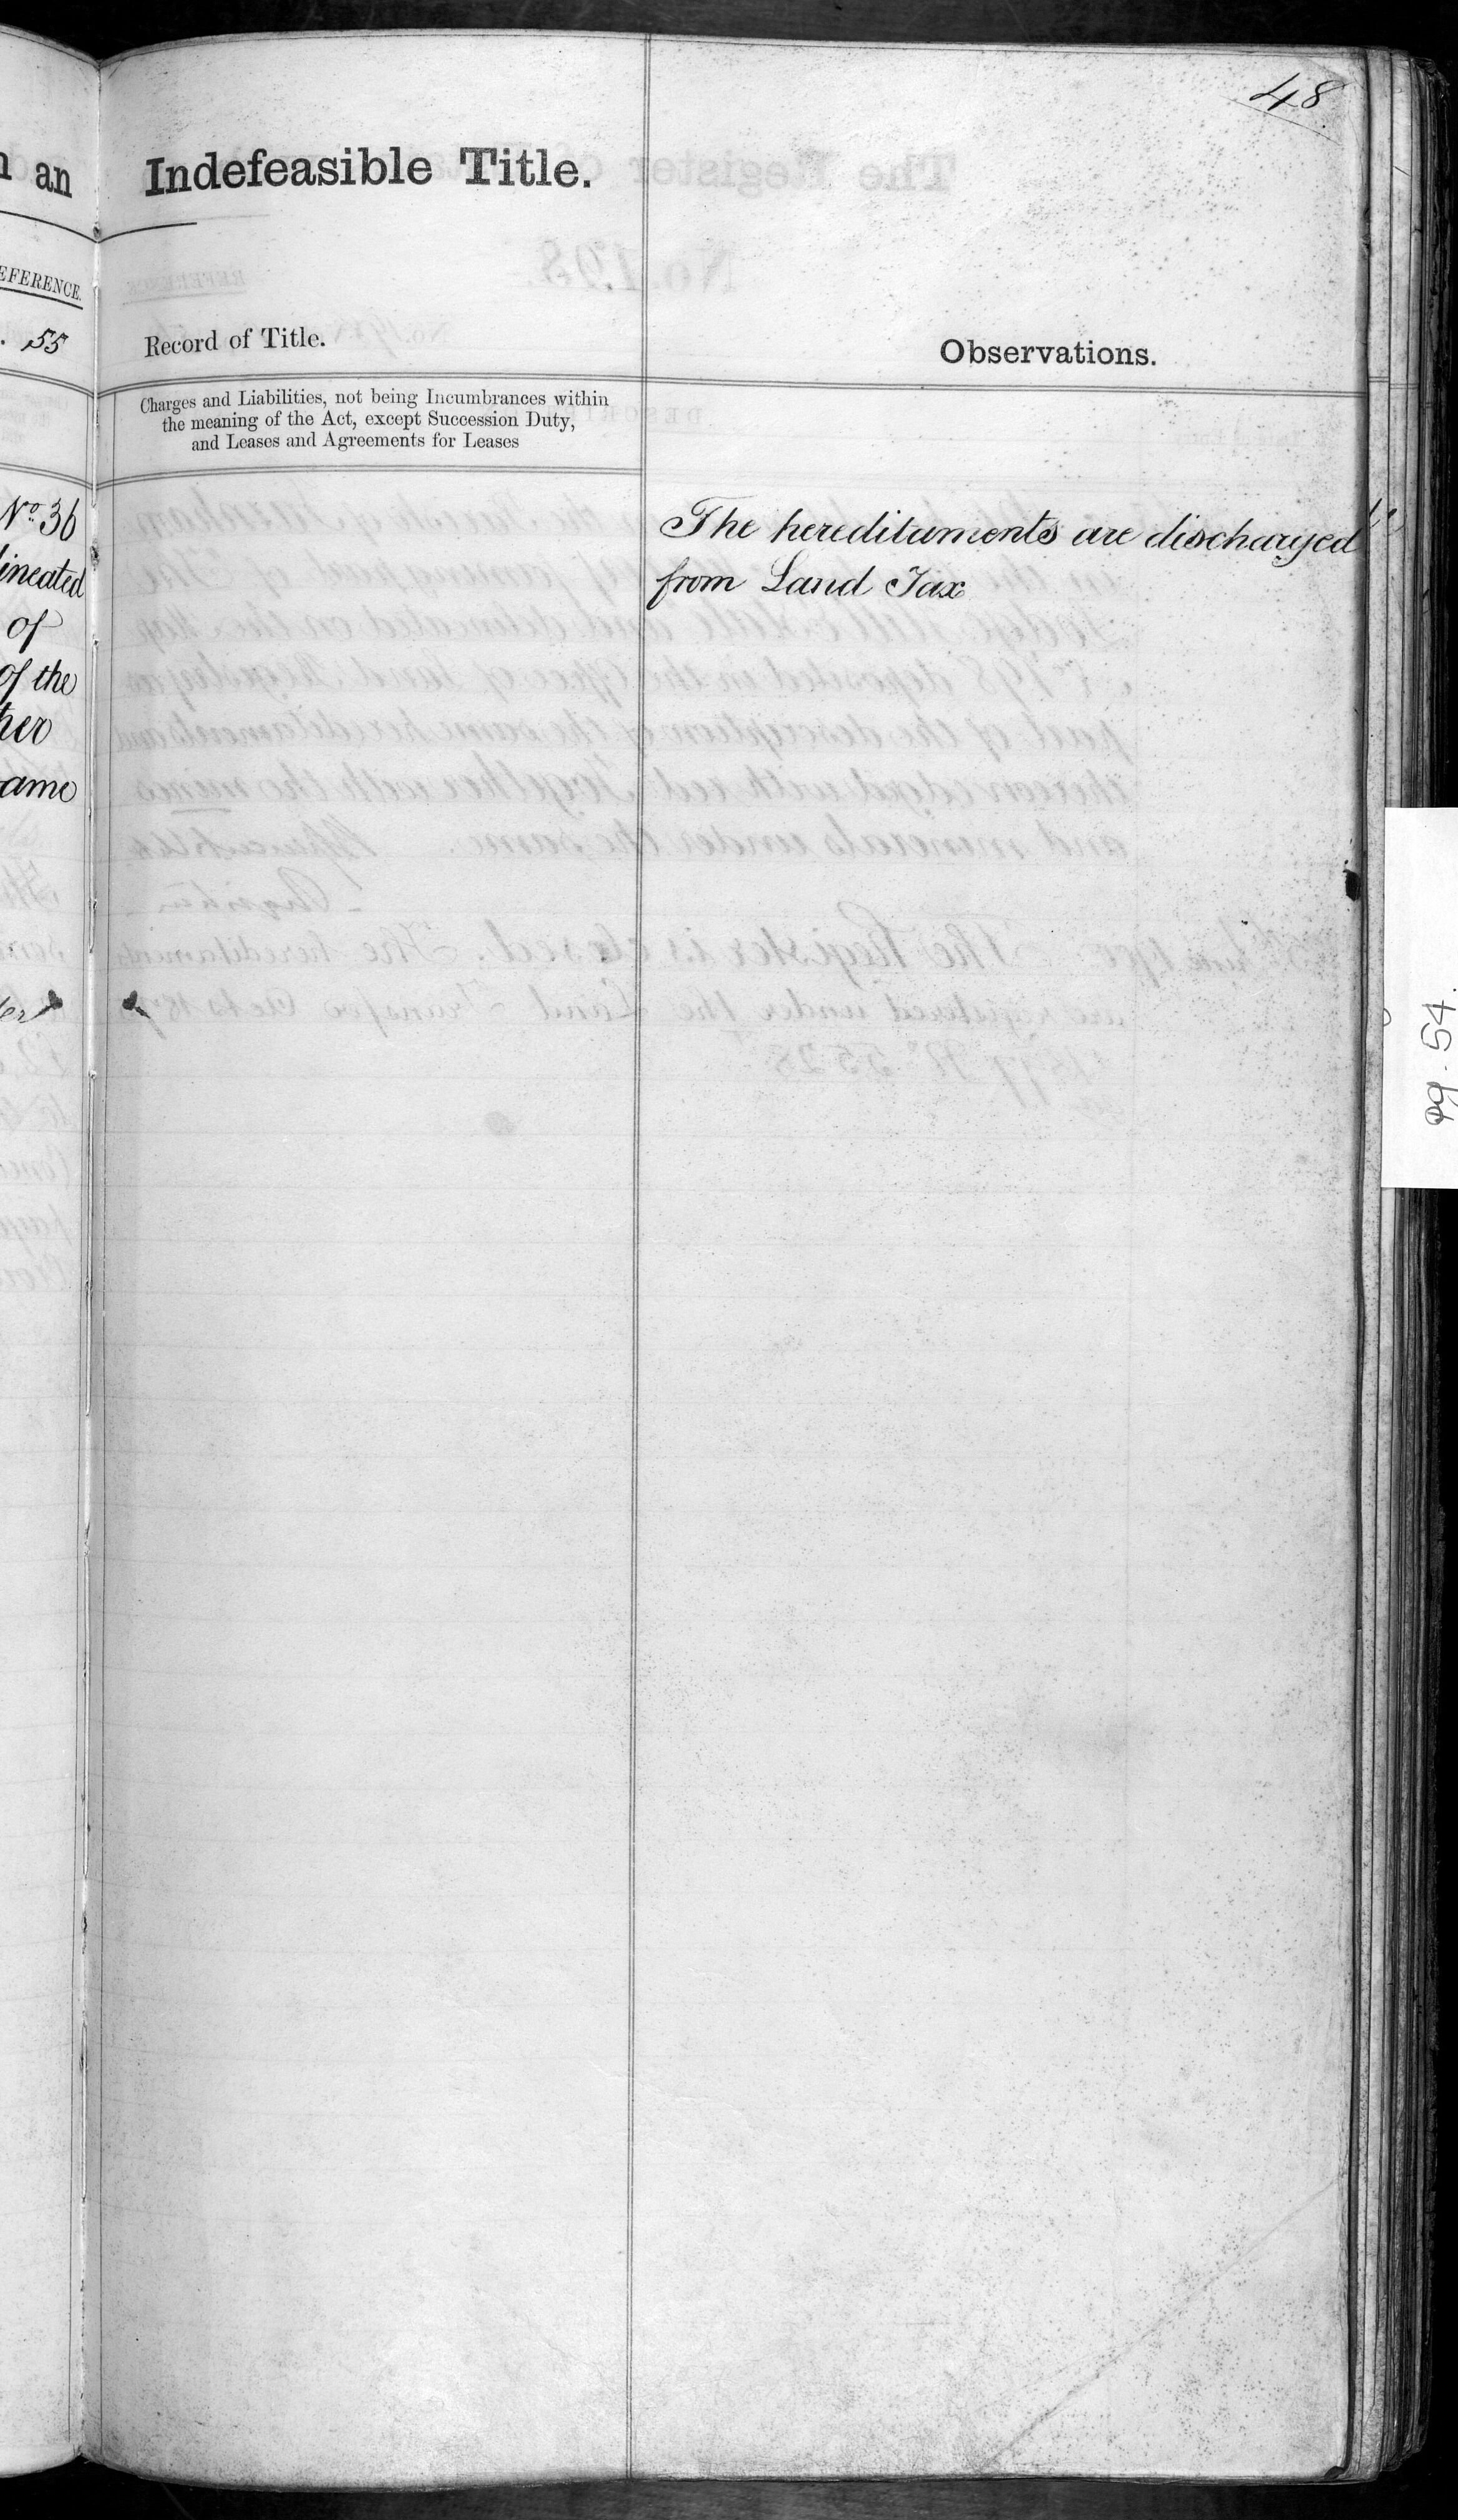 48
n an
Indefeasible Title.
EFERENCE.
. 55
Record of Title.
Observations.
Charges and Liabilities, not being Incumbrances within
the meaning of the Act, except Succession Duty,
and Leases and Agreements for Leases
No. 36
lineated
of
of the
her
ame
The hereditaments are discharged
from Land Tax
pg. 54.